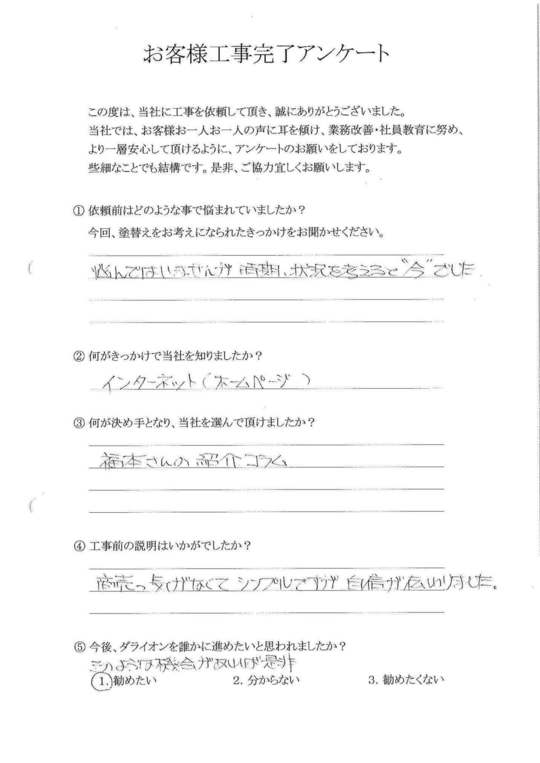 お客様工事完了アンケート
この度は、当社に工事を依頼して頂き、誠にありがとうございました。
当社では、お客様お一人お一人の声に耳を傾け、業務改善・社員教育に努め、
より一層安心して頂けるように、アンケートのお願いをしております。
些細なことでも結構です。是非、ご協力宜しくお願いします。
① 依頼前はどのような事で悩まれていましたか？
今回、塗替えをお考えになられたきっかけをお聞かせください。
悩んではいませんが 時期、状況を考えると“今”でした
② 何がきっかけで当社を知りましたか？
インターネット（ホームページ）
③ 何が決め手となり、当社を選んで頂けましたか？
福本さんの紹介コラム
④ 工事前の説明はいかがでしたか？
商売っ気がなくて シンプルですが 自信が伝わりました。
⑤ 今後、ダライオンを誰かに進めたいと思われましたか？
このような機会があれば是非
1. 勧めたい 2. 分からない 3. 勧めたくない